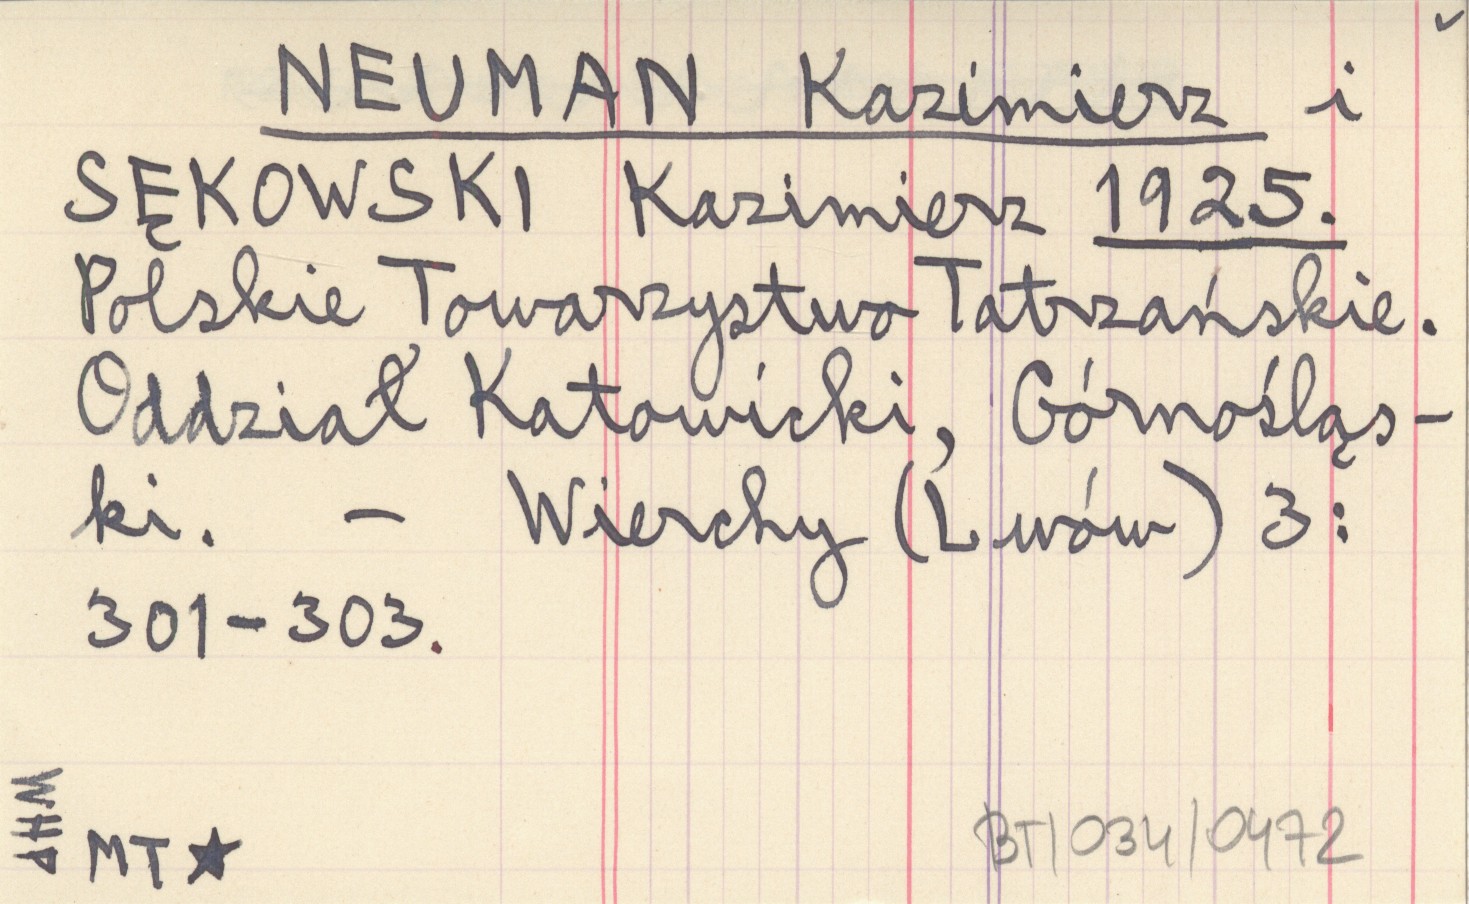 NEUMAN Kazimierz i
SĘKOWSKI Kazimierz 1925.
Polskie Towarzystwo Tatrzańskie.
Oddział Katowicki, Górnośląs-
ki. - Wierchy (Lwów) 3:
301-303.
WHP
MT ★
BT/034/0472